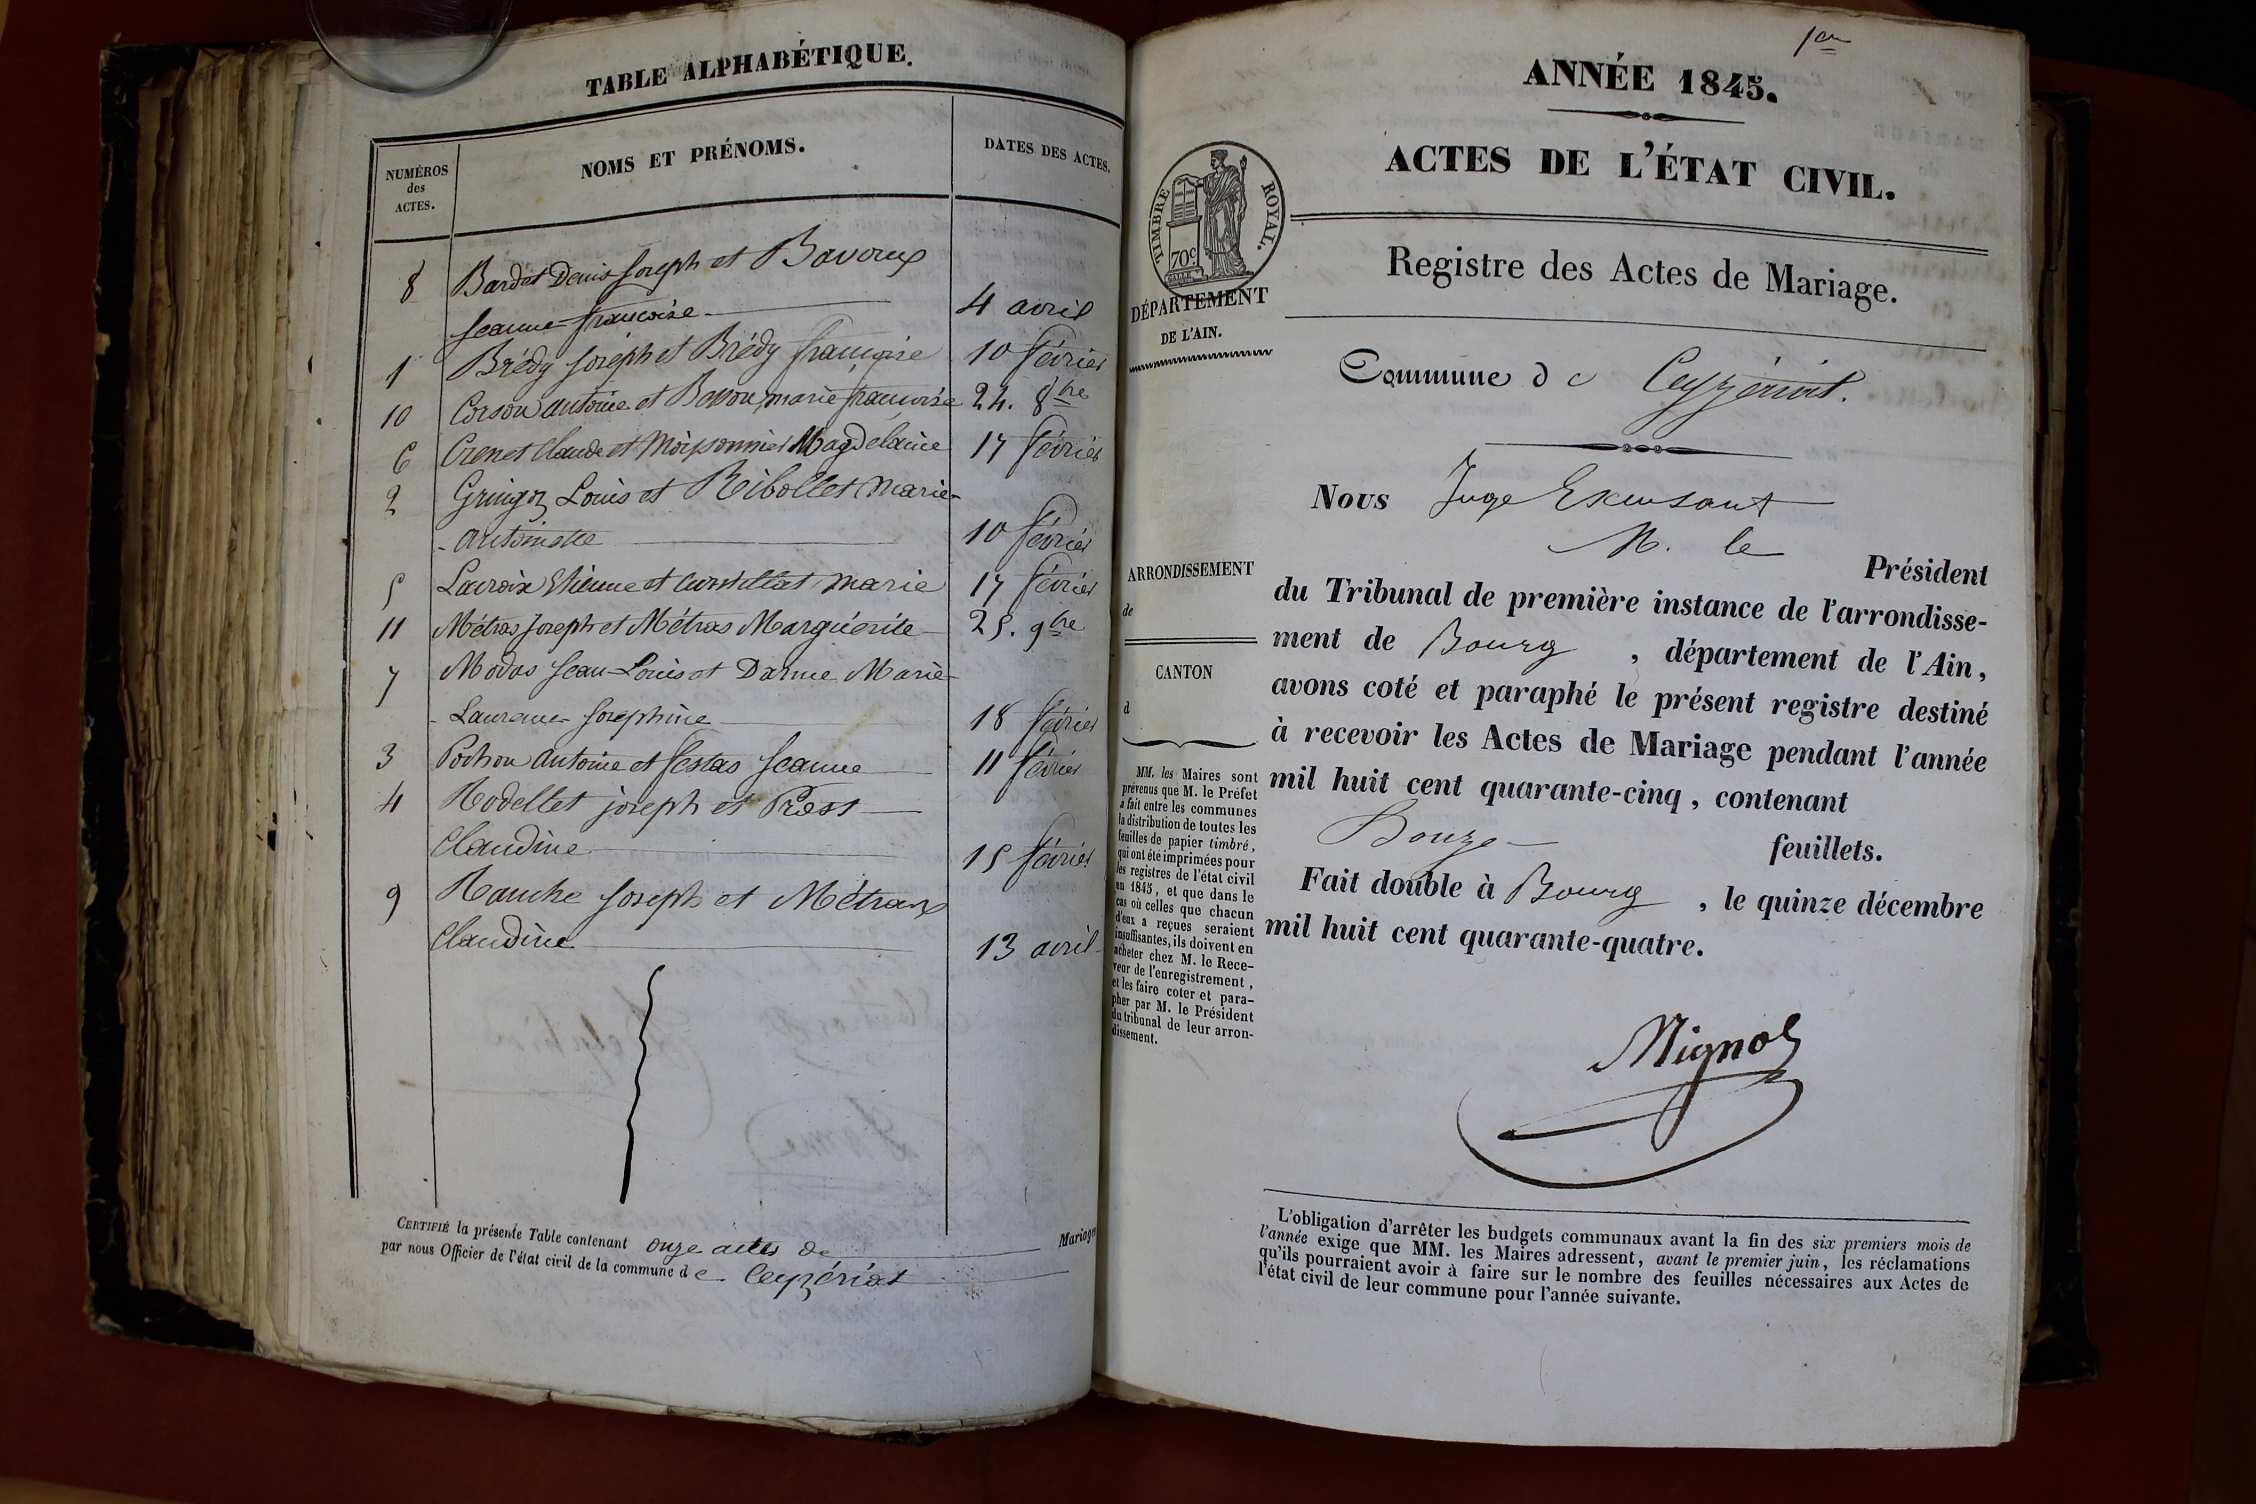 TABLE ALPHABÉTIQUE.
NUMÉROS
des
ACTES.
NOMS ET PRÉNOMS.
DATES DES ACTES.
8 Bardet Denis Joseph et Bavoux
Jeanne-françoise 4 avril
1 Brédy Joseph et Brédy françoise 10 février
10 Corson antoine et marie françoise 24. 8bre
6 Crenet Claude et Moissonnier Magdelaine 17 février
2 Gringoz Louis et Ribollet Marie-
-antoinette 10 février
5 Lacroix Etienne et Marie 17 février
11 Métras Joseph et Métras Marguérite 25. 9bre
7 Modas Jean-Louis et Darme Marie-
-Laurence Josephine 18 février
3 Pochon antoine et Jestas Jeanne 11 février
4 Rodellet joseph et Press
Claudine 15 février
9 Joseph et Métraux
Claudine 13 avril
CERTIFIÉ la présente Table contenant onze actes de Mariages
par nous Officier de l'état civil de la commune de Ceyzériat
1er
ANNÉE 1845.
ACTES DE L'ÉTAT CIVIL.
TIMBRE ROYAL.
70c
DÉPARTEMENT
DE L'AIN.
Registre des Actes de Mariage.
Commune de Ceyzériat.
Nous Juge
M. le
Président
ARRONDISSEMENT
de
CANTON
d
du Tribunal de première instance de l'arrondisse-
ment de Bourg, département de l'Ain,
avons coté et paraphé le présent registre destiné
à recevoir les Actes de Mariage pendant l'année
mil huit cent quarante-cinq, contenant
Douze feuillets.
Fait double à Bourg, le quinze décembre
mil huit cent quarante-quatre.
MM. les Maires sont
prévenus que M. le Préfet
a fait entre les communes
la distribution de toutes les
feuilles de papier timbré,
qui ont été imprimées pour
les registres de l'état civil
en 1845, et que dans le
cas où celles que chacun
d'eux a reçues seraient
insuffisantes, ils doivent en
acheter chez M. le Rece-
veur de l'enregistrement,
et les faire coter et para-
pher par M. le Président
du tribunal de leur arron-
dissement.
Mignot
L'obligation d'arrêter les budgets communaux avant la fin des six premiers mois de
l'année exige que MM. les Maires adressent, avant le premier juin, les réclamations
qu'ils pourraient avoir à faire sur le nombre des feuilles nécessaires aux Actes de
l'état civil de leur commune pour l'année suivante.